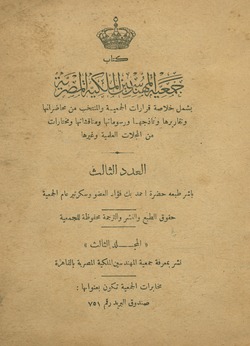 كتاب
جمعية المهندسين الملكية المصرية
يشمل خلاصة قرارات الجمعية والمنتخب من محاضراتها
وتقاريرها ونتائجها ورسوماتها ومناقشاتها ومختارات
من المجلات العلمية وغيرها
العدد الثالث
باشر طبعه حضرة احمد بك فؤاد العضو وسكرتير عام الجمعية
حقوق الطبع والنشر والترجمة محفوظة للجمعية
« المجلد الثالث »
نشر بمعرفة جمعية المهندسين الملكية المصرية بالقاهرة
مخابرات الجمعية تكون بعنوانها :
صندوق البريد رقم ٧٥١